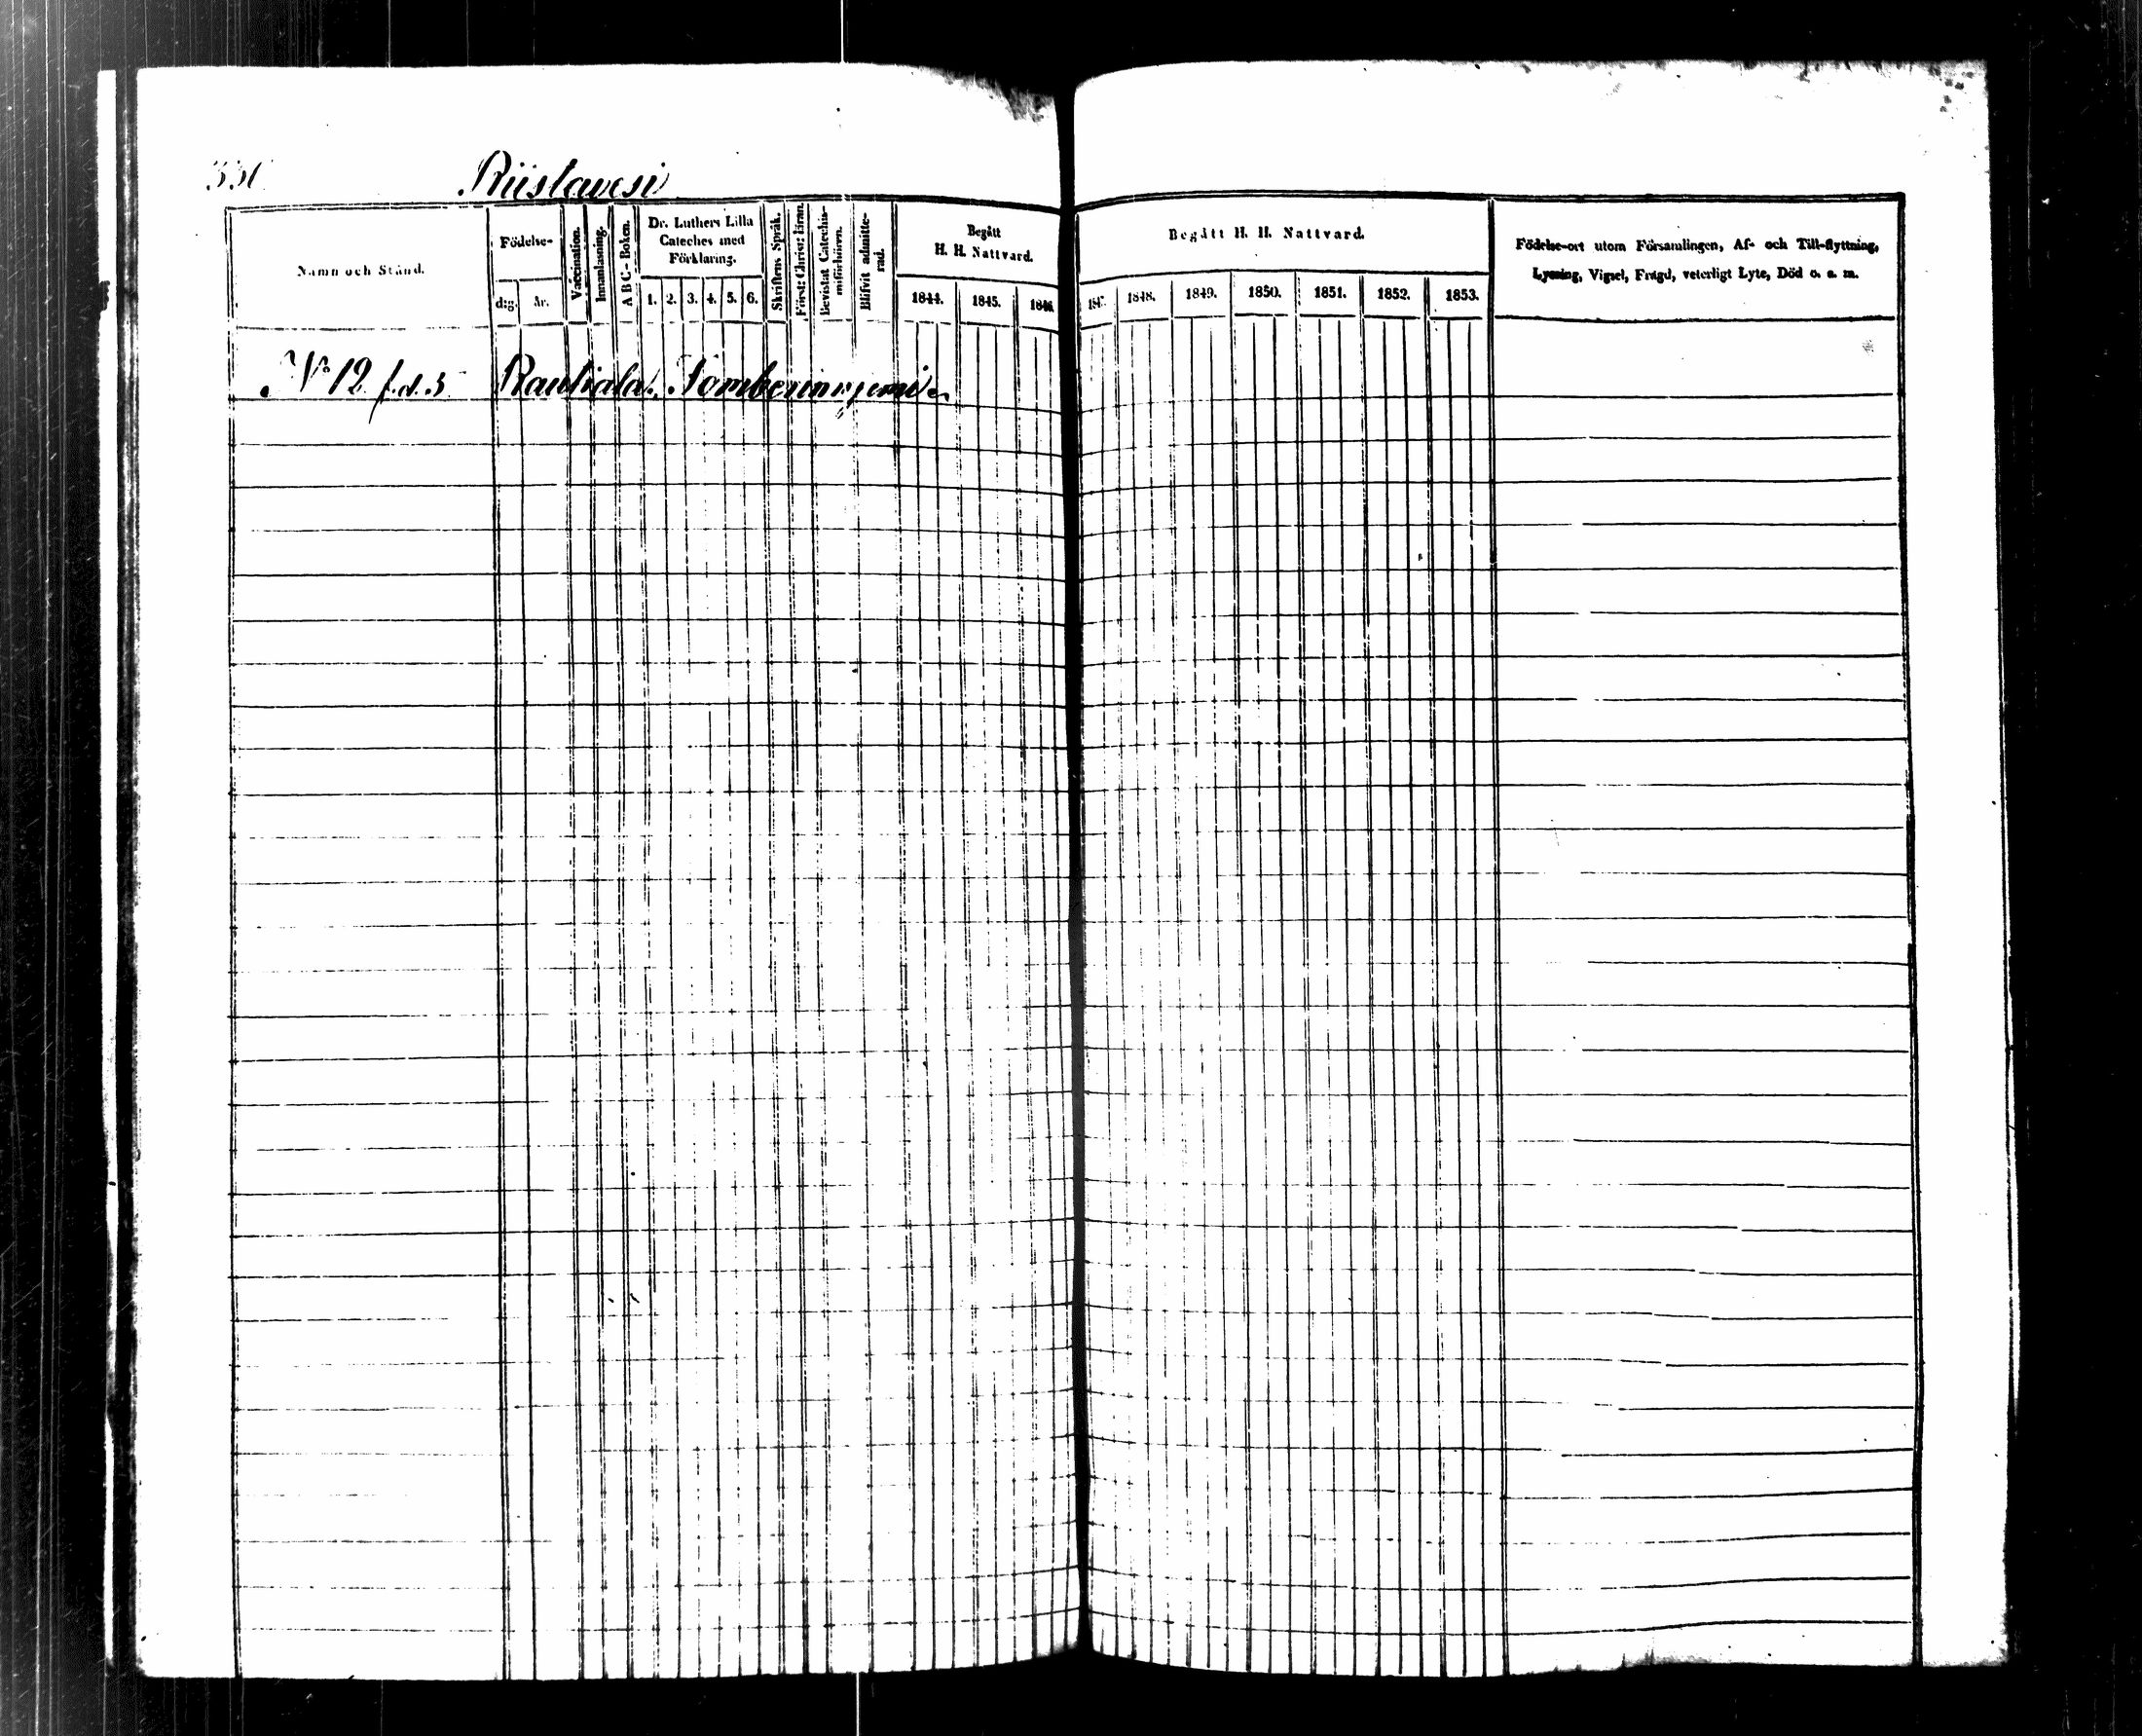 Riistavesi
Namn och Stånd.
Födelse-
d:g.
år.
Vaccination.
Innanläsning.
A B C-Boken.
Dr. Luthers Lilla
Cateches med
Förklaring.
1. 2. 3. 4. 5. 6.
Skriftens Språk.
Först: Christ: läran.
Bevistat Catechis-
miförhören.
Blifvit admitte-
rad.
Begått
H. H. Nattvard.
1844. 1845. 1846.
Begått H. H. Nattvard.
1847. 1848. 1849. 1850. 1851. 1852. 1853.
Födelse-ort utom Församlingen, Af- och Till-flyttning,
Lysning, Vigsel, Frägd, veterligt Lyte, Död o. s. m.
No 12 f.d. 5 Rautiala